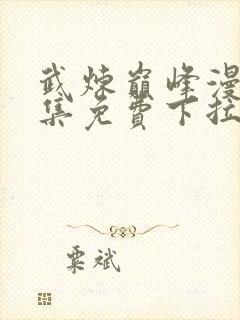 武炼巅峰漫
集免費下拉
粟斌